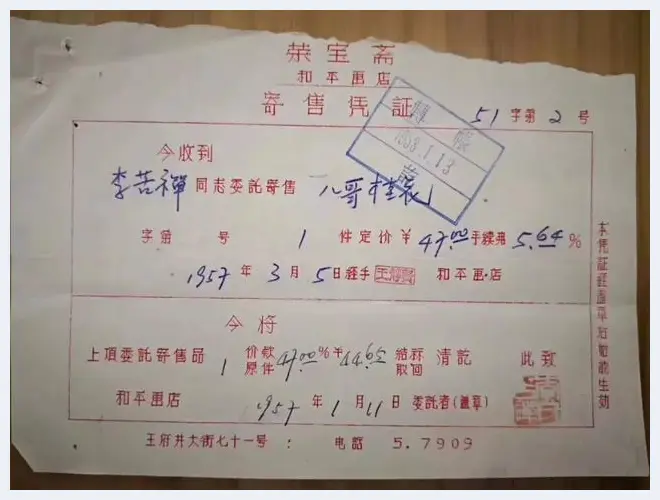 荣宝斋
和平画店
寄售凭証
51 字第 2 号
轉帳
1.13
今收到
李苦禅 同志委託寄售 「八哥
字第 号 1 件定价￥ 47.00 手续费 5.64 %
1957 年 3 月 5 日经手 和平画店
今将
上項委託寄售品 1 价款 原件 47.00 % ￥ 清訖 此致
和平画店 1957 年 1 月 11 日 委託者(盖章)
王府井大街七十一号 : 电話 5.7909